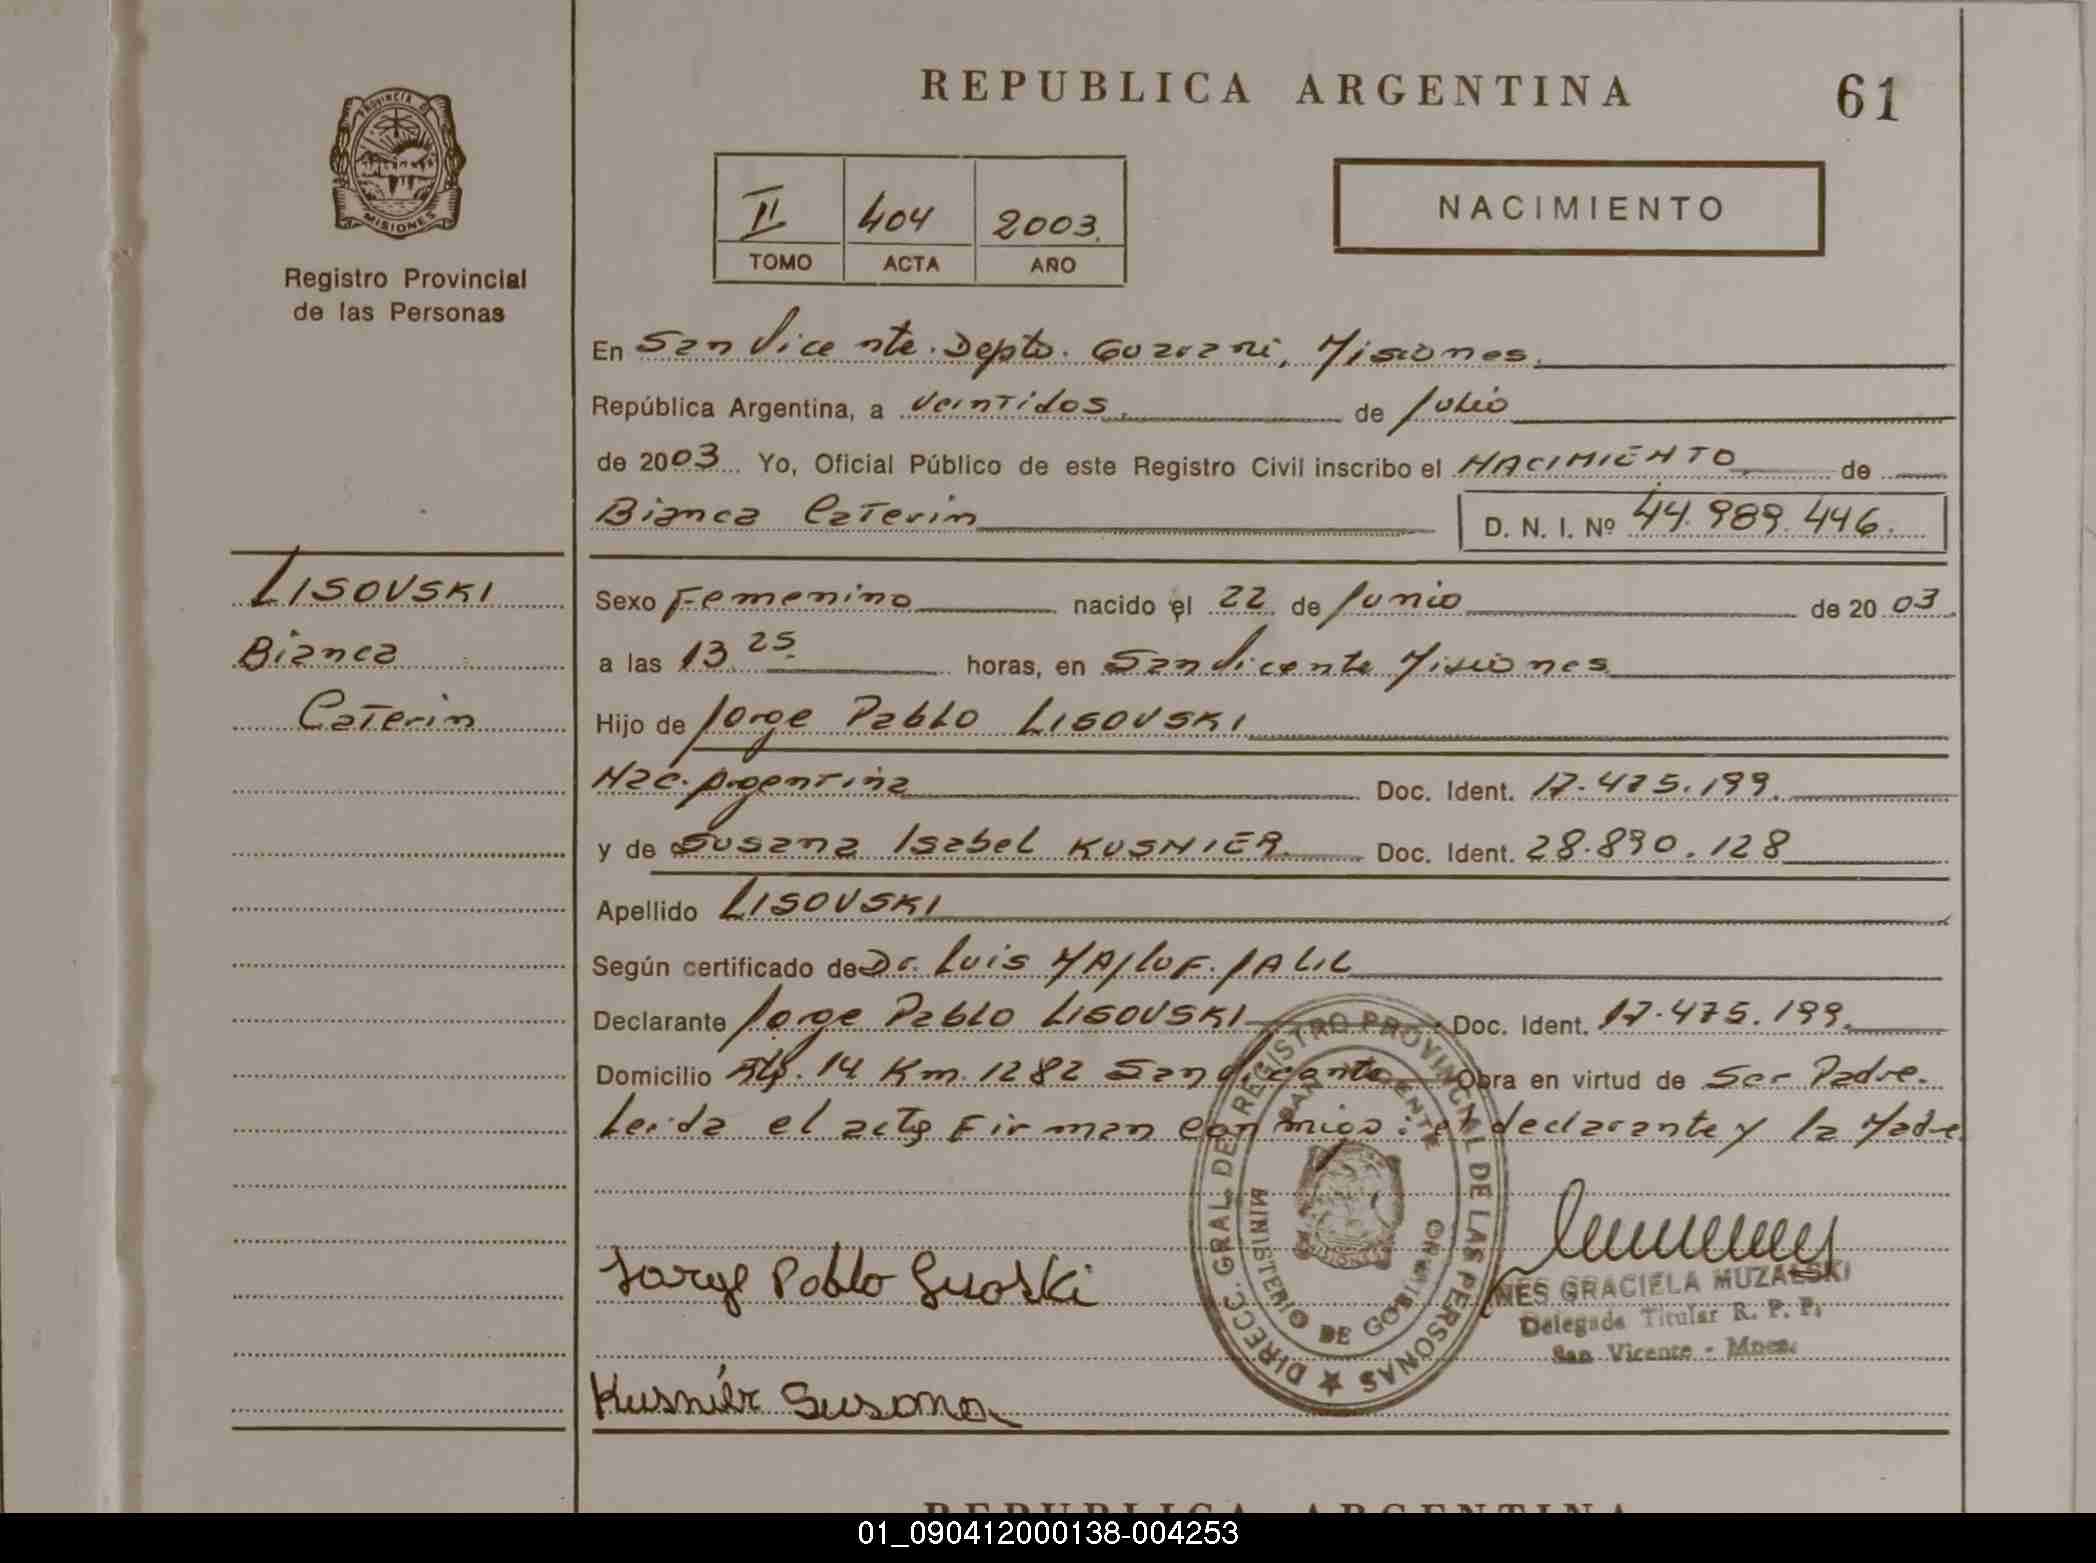 REPUBLICA ARGENTINA
61
PROVINCIA DE
MISIONES
Registro Provincial
de las Personas
II 404 2003.
TOMO ACTA AÑO
NACIMIENTO
En San Vicente. Depto. Guarani, Misiones.
República Argentina, a veintidos. de Julio
de 2003 Yo, Oficial Público de este Registro Civil inscribo el NACIMIENTO de
Bianca Caterin D. N. I. Nº 44.989.446.
LISOVSKI
Bianca
Caterin
Sexo Femenino nacido el 22 de Junio de 2003
a las 13 25 horas, en San Vicente Misiones
Hijo de Jorge Pablo LISOVSKI
Nac. Argentina Doc. Ident. 17.475.199.
y de Susana Isabel KUSNIER Doc. Ident. 28.890.128
Apellido LISOVSKI
Según certificado de Dr. Luis MAJLUF JALIL
Declarante Jorge Pablo LISOVSKI Doc. Ident. 17.475.199.
Domicilio 14 Km. 1282 San Vicente Obra en virtud de Ser Padre.
Leida el acta Firman conmigo: el declarante y la Madre
DIRECC. GRAL. DE REGISTRO PROVINCIAL DE LAS PERSONAS
SAN VICENTE
MINISTERIO DE GOBIERNO
Jorge Pablo
INES GRACIELA MUZALSKI
Delegada Titular R. P. P.
San Vicente - Mnes.
Kusnier Susana
REPUBLICA ARGENTINA
01_090412000138-004253